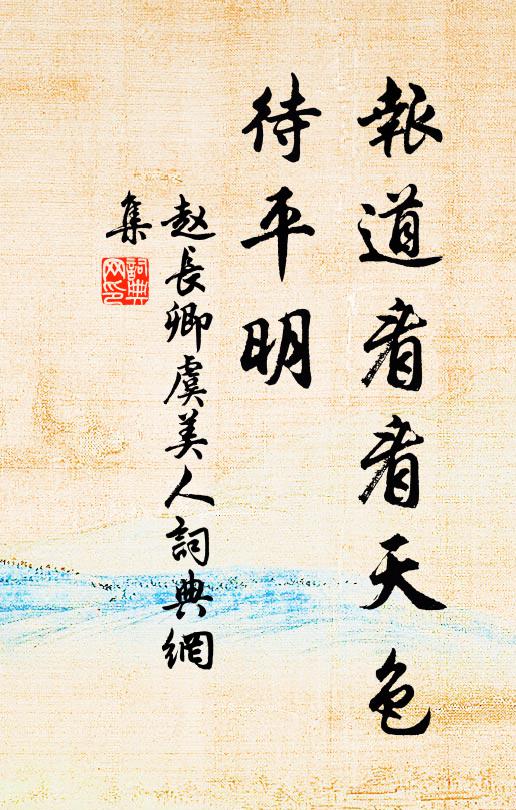 報道看看天色
待平明
赵長卿虞美人詞典網
集
詞典
网印